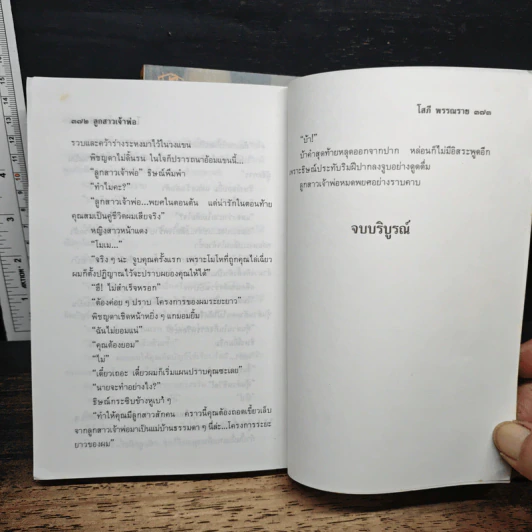 ๓๗๒ ลูกสาวเจ้าพ่อ
รวบและคว้าร่างระหงมาไว้ในวงแขน
พิชญดาไม่ดิ้นรน ในใจก็ปรารถนาอ้อมแขนนี้...
“ลูกสาวเจ้าพ่อ” ริษณ์พึมพำ
“ทำไมคะ?”
“ลูกสาวเจ้าพ่อ...พยศในตอนต้น แต่น่ารักในตอนท้าย
คุณสมเป็นคู่ชีวิตผมเสียจริง”
หญิงสาวหน้าแดง
“โมเม...”
“จริง ๆ นะ จูบคุณครั้งแรก เพราะโมโหที่ถูกคุณไล่เฉี่ยว
ผมก็ตั้งปฏิญาณไว้จะปราบผยองคุณให้ได้”
“ฮึ! ไม่สำเร็จหรอก”
“ต้องค่อย ๆ ปราบ โครงการของผมระยะยาว”
พิชญดาเชิดหน้าหยิ่ง ๆ แกมอมยิ้ม
“ฉันไม่ยอมแน่”
“คุณต้องยอม”
“ไม่”
“เดี๋ยวเถอะ เดี๋ยวผมก็เริ่มแผนปราบคุณซะเลย”
“นายจะทำอย่างไง?”
ริษณ์กระซิบข้างหูเบา ๆ
“ทำให้คุณมีลูกสาวสักคน คราวนี้คุณต้องถอดเขี้ยวเล็บ
จากลูกสาวเจ้าพ่อมาเป็นแม่บ้านธรรมดา ๆ นี่ล่ะ...โครงการระยะ
ยาวของผม”
โสภี พรรณราย ๓๗๓
“บ้า!”
บ้าคำสุดท้ายหลุดออกจากปาก หล่อนก็ไม่มีอิสระพูดอีก
เพราะริษณ์ประทับริมฝีปากลงจูบอย่างดูดดื่ม
ลูกสาวเจ้าพ่อหมดพยศอย่างราบคาบ
จบบริบูรณ์